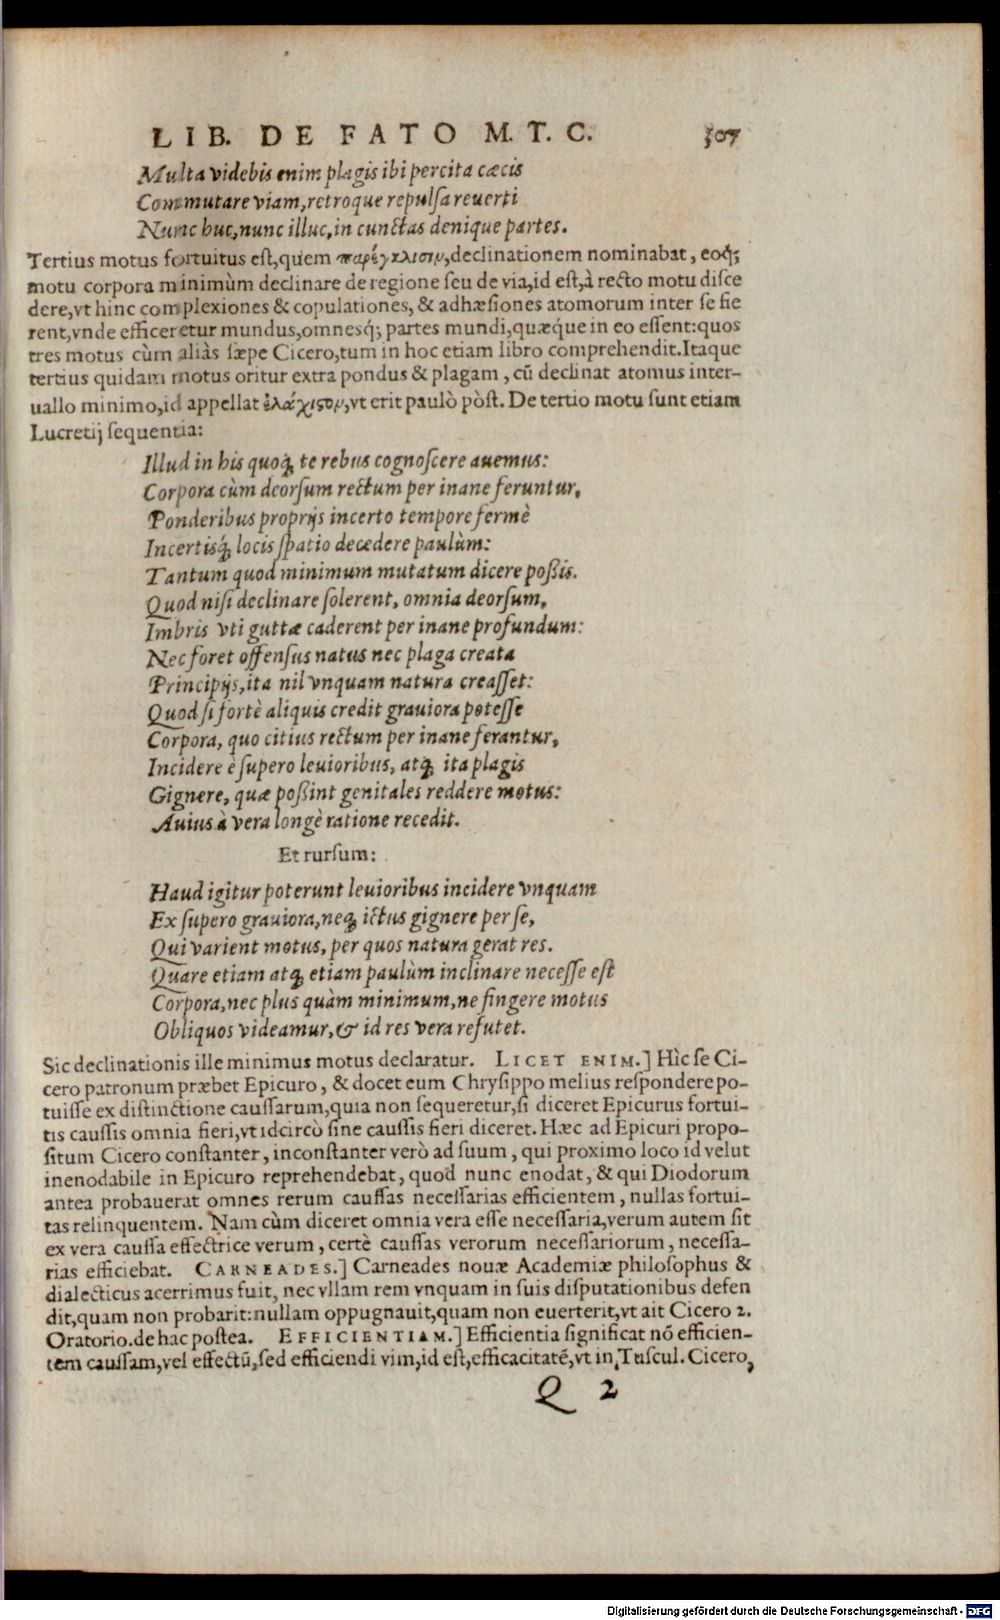 LIB. DE FATO M. T. C. 307
Multa videbis enim plagis ibi percita cæcis
Commutare viam, retroque repulsa reuerti
Nunc huc, nunc illuc, in cunctas denique partes.
Tertius motus fortuitus est, quem παρέγκλισιν, declinationem nominabat, eoq́;
motu corpora minimùm declinare de regione seu de via, id est, à recto motu disce
dere, vt hinc complexiones & copulationes, & adhæsiones atomorum inter se fie
rent, vnde efficeretur mundus, omnesq́; partes mundi, quæq́ue in eo essent: quos
tres motus cùm aliàs sæpe Cicero, tum in hoc etiam libro comprehendit. Itaque
tertius quidam motus oritur extra pondus & plagam, cū declinat atomus inter-
uallo minimo, id appellat ἐλάχιστον, vt erit paulò pòst. De tertio motu sunt etiam
Lucretij sequentia:
Illud in his quoq́; te rebus cognoscere auemus:
Corpora cùm deorsum rectum per inane feruntur,
Ponderibus proprijs incerto tempore fermè
Incertisq́; locis spatio decedere paulùm:
Tantum quod minimum mutatum dicere poßis.
Quod nisi declinare solerent, omnia deorsum,
Imbris vti guttæ caderent per inane profundum:
Nec foret offensus natus nec plaga creata
Principijs, ita nil vnquam natura creasset:
Quod si fortè aliquis credit grauiora potesse
Corpora, quo citius rectum per inane ferantur,
Incidere è supero leuioribus, atq; ita plagis
Gignere, quæ poßint genitales reddere motus:
Auius à vera longè ratione recedit.
Et rursum:
Haud igitur poterunt leuioribus incidere vnquam
Ex supero grauiora, neq; ictus gignere per se,
Qui varient motus, per quos natura gerat res.
Quare etiam atq; etiam paulùm inclinare necesse est
Corpora, nec plus quàm minimum, ne fingere motus
Obliquos videamur, & id res vera refutet.
Sic declinationis ille minimus motus declaratur. LICET ENIM.] Hîc se Ci-
cero patronum præbet Epicuro, & docet eum Chrysippo melius respondere po-
tuisse ex distinctione caussarum, quia non sequeretur, si diceret Epicurus fortui-
tis caussis omnia fieri, vt idcircò sine caussis fieri diceret. Hæc ad Epicuri propo-
situm Cicero constanter, inconstanter verò ad suum, qui proximo loco id velut
inenodabile in Epicuro reprehendebat, quod nunc enodat, & qui Diodorum
antea probauerat omnes rerum caussas necessarias efficientem, nullas fortui-
tas relinquentem. Nam cùm diceret omnia vera esse necessaria, verum autem sit
ex vera caussa effectrice verum, certè caussas verorum necessariorum, necessa-
rias efficiebat. CARNEADES.] Carneades nouæ Academiæ philosophus &
dialecticus acerrimus fuit, nec vllam rem vnquam in suis disputationibus defen
dit, quam non probarit: nullam oppugnauit, quam non euerterit, vt ait Cicero 2.
Oratorio. de hac postea. EFFICIENTIAM.] Efficientia significat nō efficien-
tem caussam, vel effectū, sed efficiendi vim, id est, efficacitatē, vt in Tuscul. Cicero,
Q 2
Digitalisierung gefördert durch die Deutsche Forschungsgemeinschaft - DFG